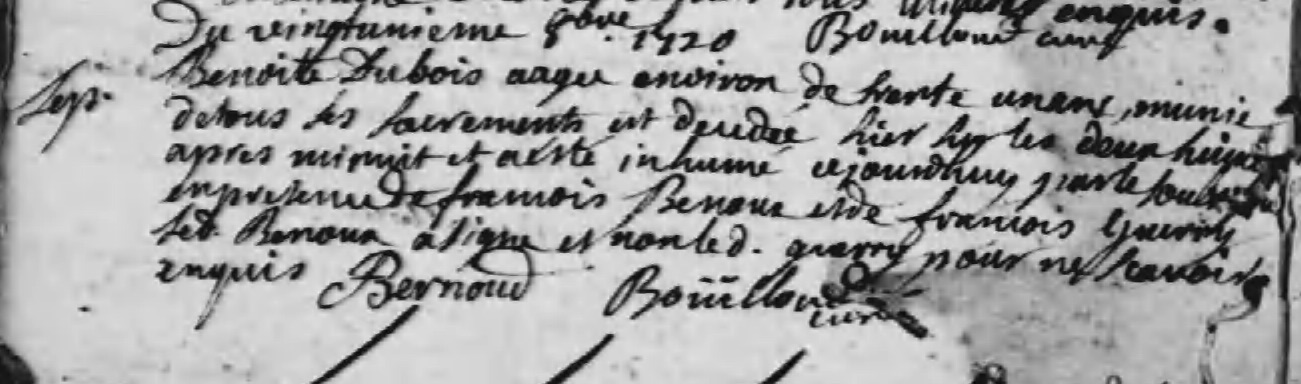 enquis.
Du vingtunieme 8bre. 1720 Bouilloud curé
Sep. Benoite Dubois aagee environ de trente un ans, munie
de tous les sacrements est decedée hier sur les deux heures
apres minuit et a esté inhumé cejourdhuy par le
en presence de francois Benoux et de francois Guerry
led. Benoux a signe et non led. guerry pour ne scavoir
enquis Bernoud Boüilloud curé